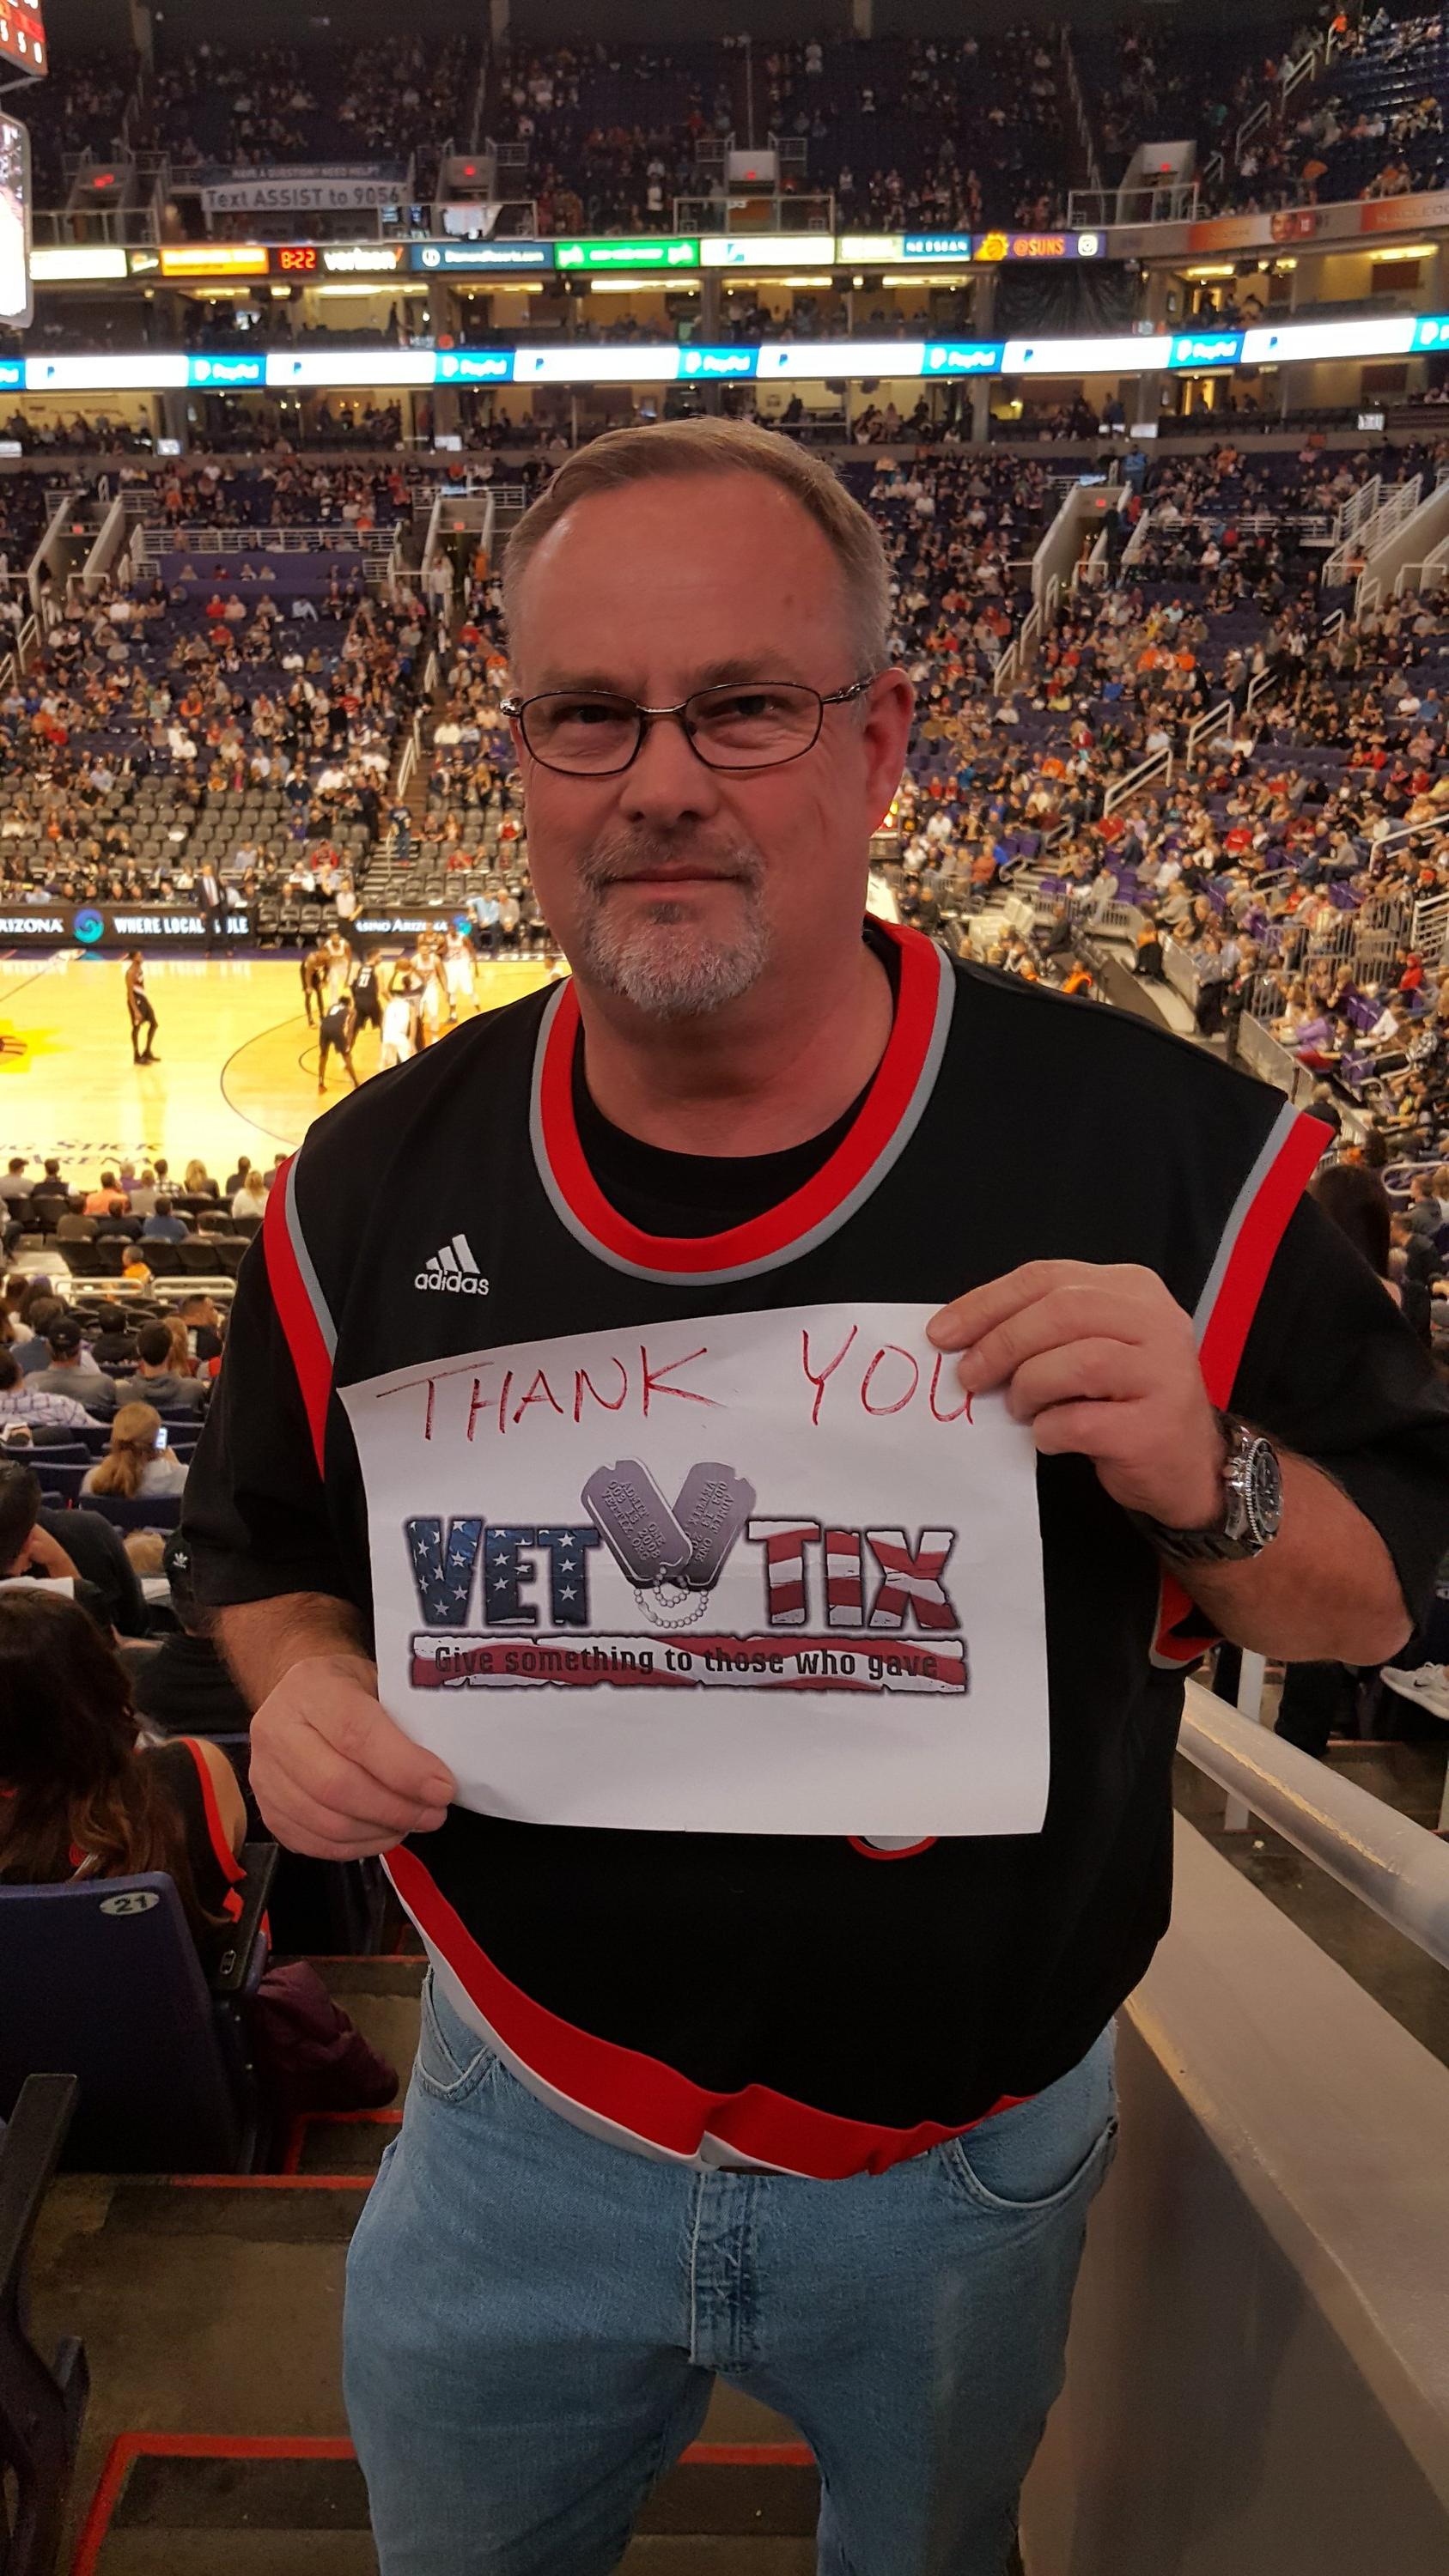 HAVE A QUESTION? NEED HELP?
Text ASSIST to 9056
8:22
verizon
@SUNS
PayPal
PayPal
PayPal
PayPal
PayPal
RIZONA
WHERE LOCALS RULE
CASINO ARIZONA
ARENA
adidas
THANK YOU
VET TIX
Give something to those who gave
21